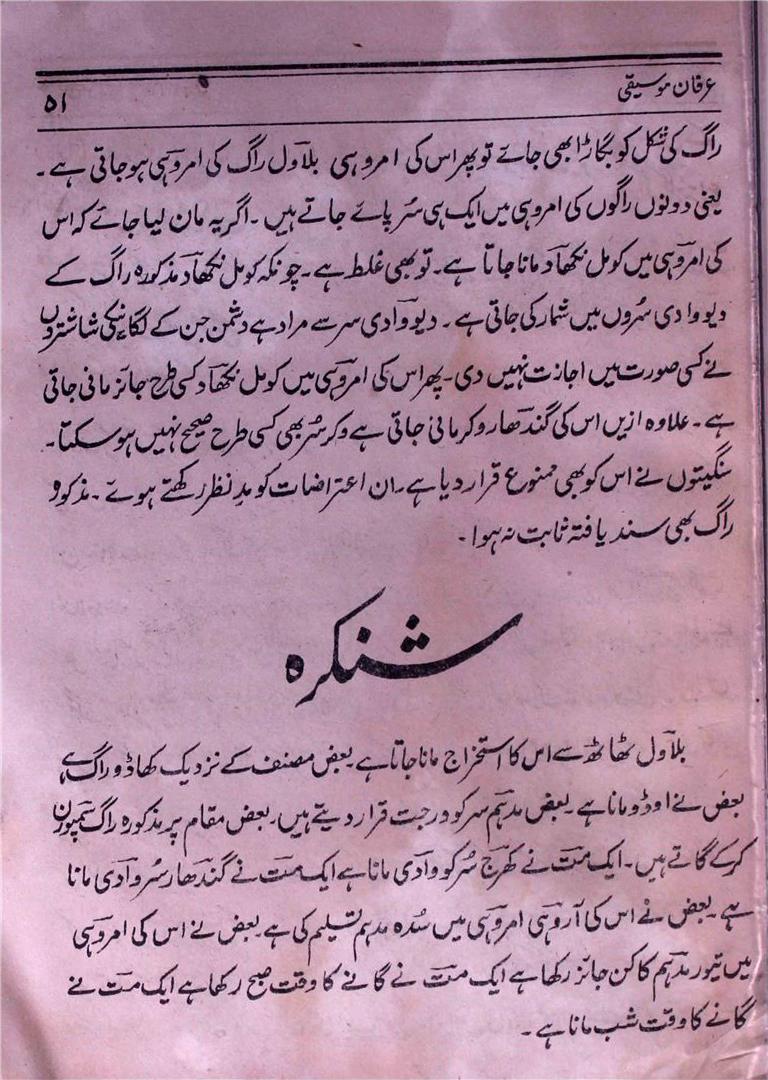 عرفان موسیقی
۵۱
راگ کی شکل کو بگاڑا بھی جائے تو پھر اس کی امروہی بلاول راگ کی امروہی ہو جاتی ہے۔
یعنی دونوں راگوں کی امروہی میں ایک ہی سُر پائے جاتے ہیں۔ اگر یہ مان لیا جائے کہ اس
کی امروہی میں کومل نکھاد مانا جاتا ہے۔ تو بھی غلط ہے۔ چونکہ کومل نکھاد مذکورہ راگ کے
دیووادی سُروں میں شمار کی جاتی ہے۔ دیووادی سر سے مراد ہے دشمن جن کے لگانیکی شاشتروں
نے کسی صورت میں اجازت نہیں دی۔ پھر اس کی امروہی میں کومل نکھاد کسی طرح جائز مانی جاتی
ہے۔ علاوہ ازیں اس کی گندھار وکر مانی جاتی ہے وکر سُر بھی کسی طرح صحیح نہیں ہو سکتا۔
سنگیتوں نے اس کو بھی ممنوع قرار دیا ہے۔ ان اعتراضات کو مدِ نظر رکھتے ہوئے۔ مذکورہ
راگ بھی سند یافتہ ثابت نہ ہوا۔
شنکرہ
بلاول ٹھاٹھ سے اس کا استخراج مانا جاتا ہے بعض مصنف کے نزدیک کھاڈو راگ ہے
بعض نے اوڈو مانا ہے۔ بعض مدہم سر کو ورجت قرار دیتے ہیں۔ بعض مقام پر مذکورہ راگ سمپورن
کر کے گاتے ہیں۔ ایک مت نے کھرج سُر کو وادی مانا ہے ایک مت نے گندھار سُر وادی مانا
ہے۔ بعض نے اس کی آروہی امروہی میں سُدہ مدہم تسلیم کی ہے بعض نے اس کی امروہی
میں تیور مدہم کا کن جائز رکھا ہے ایک مت نے گانے کا وقت صبح رکھا ہے ایک مت نے
گانے کا وقت شب مانا ہے۔